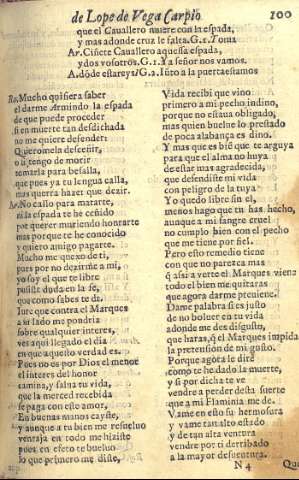 de Lope de Vega Carpio 100
que el Cauallero muere con la espada,
y mas adonde crua le falta. G.1. Toma
Ar. Ciñete Cauallero aquessa espada,
y dos vosotros. G.1. Ya señor nos vamos.
A. dõde estareys? G.2. Iũto a la puerta estamos
Ro. Mucho quisiera saber
el darme Armindo la espada
de que puede proceder
si en muerte tan desdichada
no me quiere defender:
Quieromela defenir,
o si tengo de morir
tomarla para besalla,
que pues ya tu lengua calla,
mas querra hazer que dezir.
Ar. No callo para mararte,
ni la espada te he ceñido
por querer muriendo honrarte
mas porque te he conocido
y quiero amigo pagarte.
Mucho me quexo de ti,
pues por no dezirme a mi,
yo soy el que te libre
pusiste duda en la fe,
que como sabes te di.
Iure que contra el Marques
a tu lado me pondria
sobre qualquier interes,
ves aqui llegado el dia
en que aquesto verdad es.
Pues no es por Dios el menor
el interes del honor
camina, y salua tu vida,
que la merced recebida
se paga con este amor,
En buenas manos cayste,
y aunque a tu bien me resueluo
ventaja en todo me hiziste
pues en efeto te bueluo
lo que primero me diste,
Vida recibi que vino
primero a mi pecho indino,
porque no estaua obligado,
mas quien buelue lo prestado
de poca alabança es dino.
Y mas que es bië que te arguya
para que el alma no huya
de estar mas agradecida,
que defendiste mi vida
con peligro de la tuya
Yo quedo libre sin el,
menos hago que tu has hecho,
aunque a mi sangre cruel
no cumplo bien con el pecho
que me tiene por fiel.
Pero esto remedio tiene
con que no parezca mas
q̃ assi a verte el Marques viene
todo el bien me quitaras
que agora darme preuiene.
Dame palabra si es justo
de no boluer en tu vida
adonde me des disgusto,
que haras, q̃ el Marques impida
la pretension de mi gusto.
Porque agora le dirè
como te he dado la muerte,
y si por dicha te ve
vendre a perder desta suerte
que a mi Flaminia me de.
Vame en esto su hermosura
y vame tan alto estado
y de tan alta ventura
vendre por ti derribado
a la mayor desuentura.
N 4 Qui